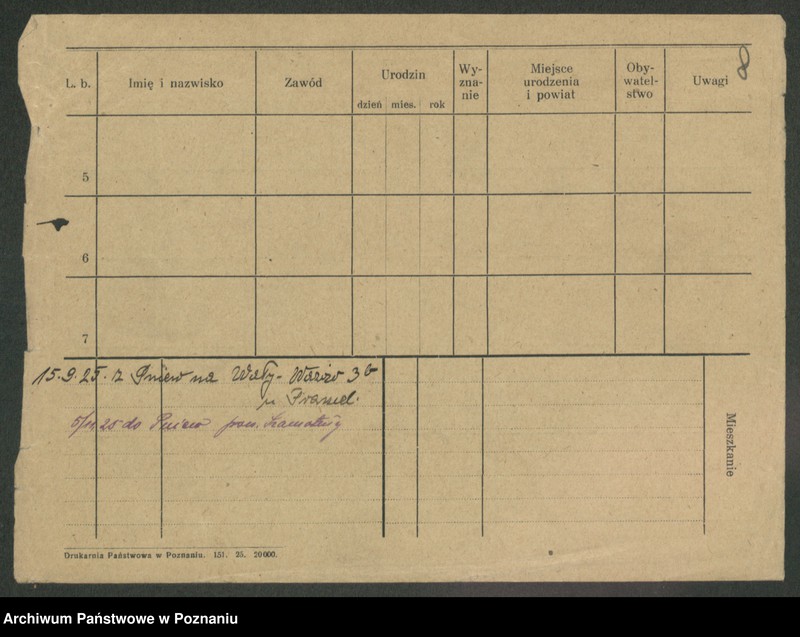 8
L. b.
Imię i nazwisko
Zawód
Urodzin
dzień mies. rok
Wy-
zna-
nie
Miejsce
urodzenia
i powiat
Oby-
watel-
stwo
Uwagi
5
6
7
15.9.25. z Pniew na Wały-Wazów 3b
u
5/11.25 do Pniew pow. Szamotuły
Mieszkanie
Drukarnia Państwowa w Poznaniu. 151. 25. 20000.
Archiwum Państwowe w Poznaniu